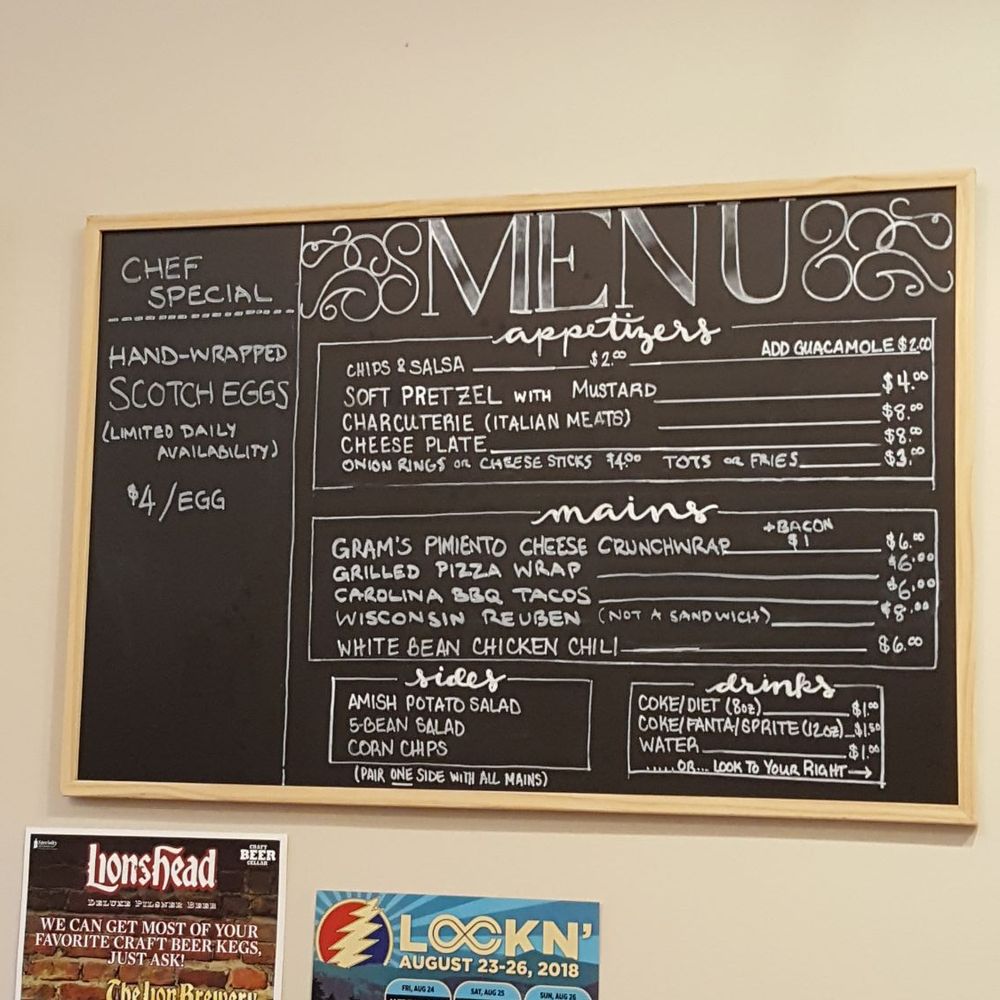 CHEF
SPECIAL
HAND-WRAPPED
SCOTCH EGGS
(LIMITED DAILY
AVAILABILITY)
$4/EGG
MENU
appetizers
CHIPS & SALSA $2.00 ADD GUACAMOLE $2.00
SOFT PRETZEL WITH MUSTARD $4.00
CHARCUTERIE (ITALIAN MEATS) $8.00
CHEESE PLATE $8.00
ONION RINGS OR CHEESE STICKS $4.00 TOTS OR FRIES $3.00
mains
+BACON
$1
GRAM'S PIMIENTO CHEESE CRUNCHWRAP $6.00
GRILLED PIZZA WRAP $6.00
CAROLINA BBQ TACOS $6.00
WISCONSIN REUBEN (NOT A SANDWICH) $8.00
WHITE BEAN CHICKEN CHILI $6.00
sides
AMISH POTATO SALAD
5-BEAN SALAD
CORN CHIPS
(PAIR ONE SIDE WITH ALL MAINS)
drinks
COKE/DIET (8oz) $1.00
COKE/FANTA/SPRITE (12oz) $1.50
WATER $1.00
.....OR... LOOK TO YOUR RIGHT→
Lionshead
DELUXE PILSNER BEER
CRAFT
BEER
CELLAR
WE CAN GET MOST OF YOUR
FAVORITE CRAFT BEER KEGS,
JUST ASK!
The Lion Brewery
LOCKN'
AUGUST 23-26, 2018
FRI, AUG 24
SAT, AUG 25
SUN, AUG 26